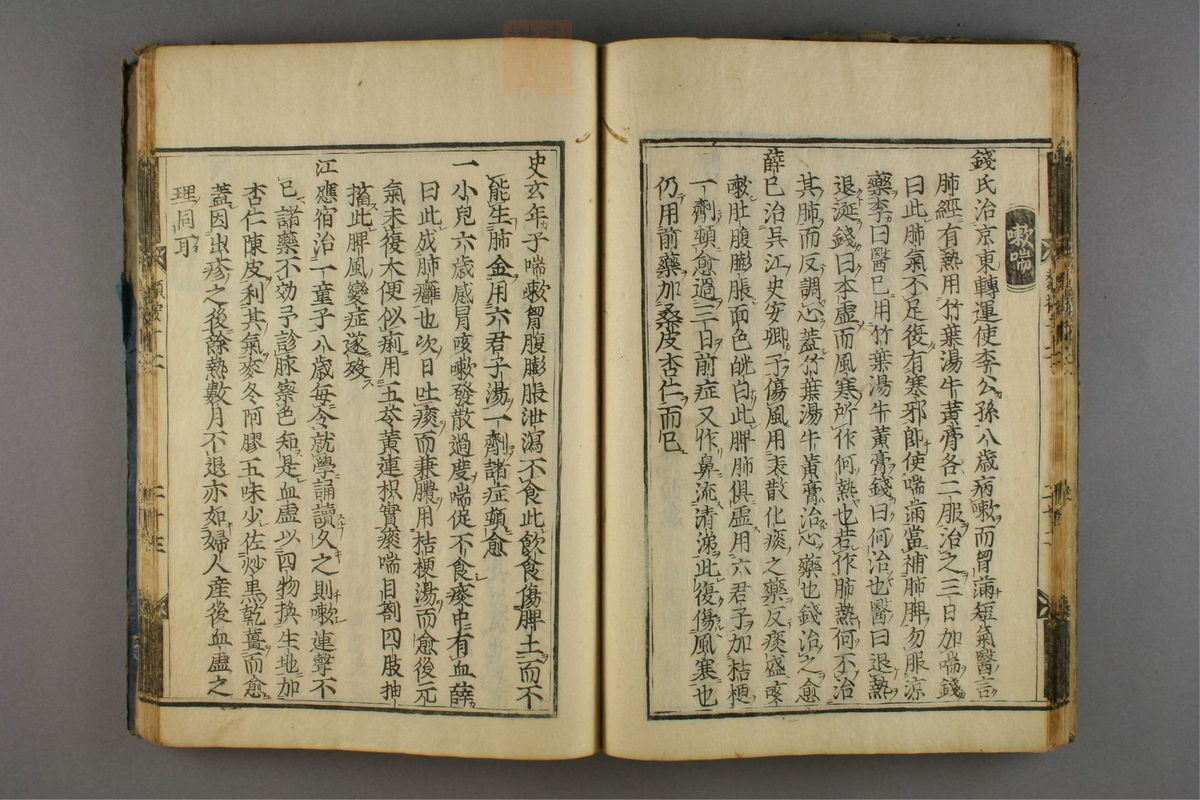 嗽喘
錢氏治京東轉運使李公孫八歲病嗽而胷滿短氣醫言
肺經有熱用竹葉湯牛黃膏各二服治之三日加喘錢
曰此肺氣不足復有寒邪即使喘滿當補肺脾勿服涼
藥李曰醫已用竹葉湯牛黃膏錢曰何治也醫曰退熱
退涎錢曰本虛而風寒所作何熱也若作肺熱何不治
其肺而反調心蓋竹葉湯牛黃膏治心藥也錢治之愈
薛已治吳江史安卿子傷風用表散化痰之藥反痰盛咳
嗽肚腹膨脹面色㿠白此脾肺俱虛用六君子加桔梗
一劑頓愈過三日前症又作鼻流清涕此復傷風寒也
仍用前藥加桑皮杏仁而已
史玄年子喘嗽胷腹膨脹泄瀉不食此飲食傷脾土而不
能生肺金用六君子湯一劑諸症頓愈
一小兒六歲感冒咳嗽發散過度喘促不食痰中有血薛
曰此成肺癰也次日吐痰而兼膿用桔梗湯而愈後元
氣未復大便似痢用五苓黃連枳實痰喘目劄四肢抽
搐此脾風變症遂殁
江應宿治一童子八歲每令就學誦讀久之則嗽連聲不
已諸藥不効予診脉察色知是血虛以四物換生地加
杏仁陳皮利其氣麥冬阿膠五味少佐炒黑乾薑而愈
蓋因出疹之後餘熱數月不退亦如婦人產後血虛之
理同耳